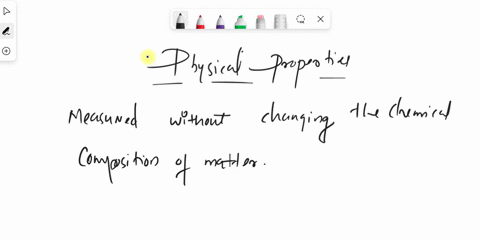 Physical Properties
Measured without changing the chemical
Composition of matter.